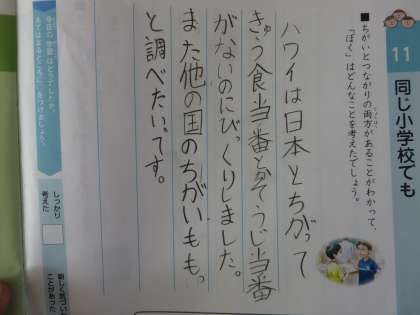 11
同じ小学校でも
■ちがいとつながりの両方があることがわかって、
「ぼく」はどんなことを考えたでしょう。
ハワイは日本とちがって
きゅう食当番とかそうじ当番
がないのにびっくりしました。
また他の国のちがいももっ
と調べたいです。
今日の学習はどうでしたか。
あてはまるところに、
をつけましょう。
しっかり
考えた
新しく気づいた
ことがあった